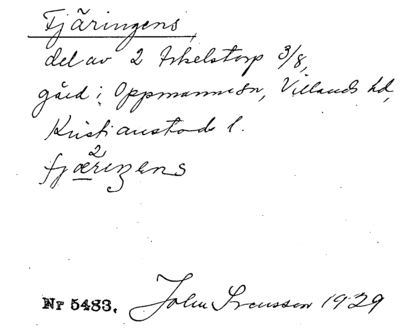 Fjäringens,
del av 2 Arkelstorp 3/8,
gård i Oppmanna sn, Villands hd,
Kristianstads l.
fjæ²riŋens
Nr 5483. John Svensson 1929